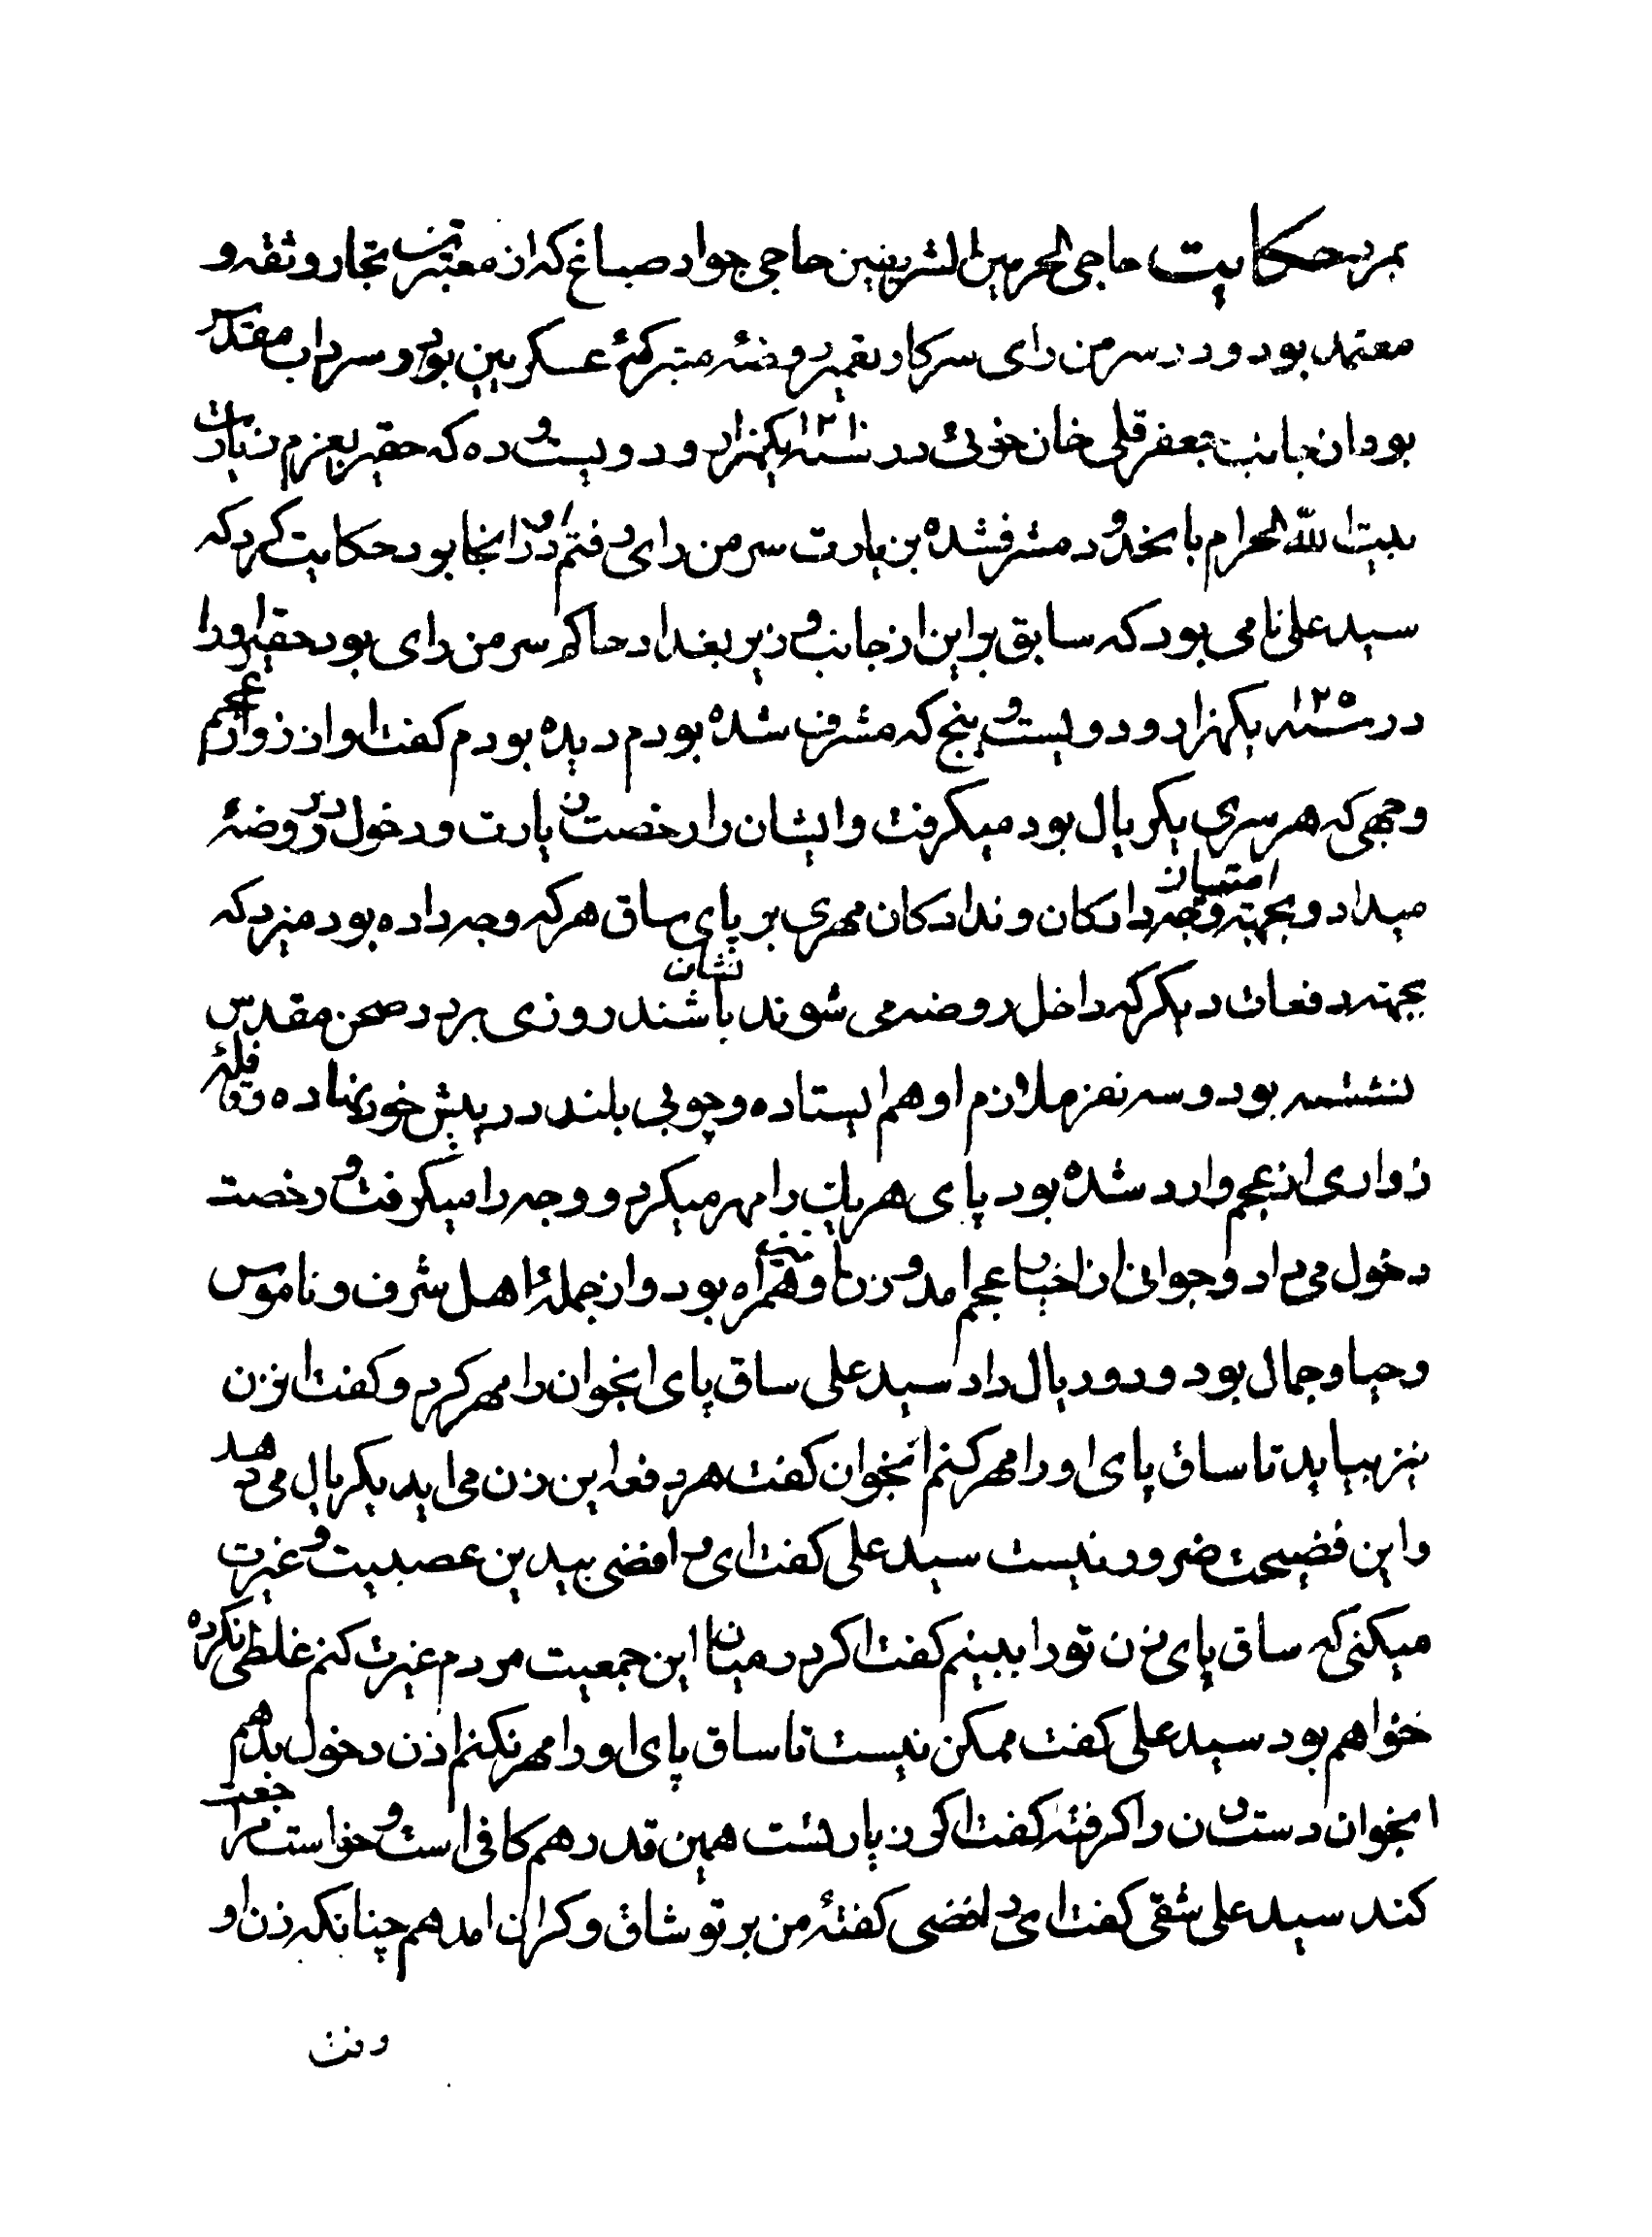 ببرد حکایت حاجی الحرمین الشریفین حاجی جواد صباغ که از معتبرین تجار و ثقه و
معتمد بود و در سر من رای سرکار تعمیر روضهٔ متبرکهٔ عسکریین بود و سرداب مقدس
بود از جانب جعفر قلی خان خوئی در سنه ۱۲۱۰ یکهزار و دویست و ده که حقیر بعزم زیارت
بیت الله الحرام بانحدود مشرف شده بزیارت سر من رای رفتم او در انجا بود حکایت کرد که
سید علی نامی بود که سابق براین از جانب وزیر بغداد حاکم سر من رای بود و حقیر او را
در سنه ۱۲۰۵ یکهزار و دویست و پنج که مشرف شده بودم دیده بودم گفت او از زوار عجم
وجهی که هر سری یکریال بود میگرفت و ایشان را رخصت زیارت و دخول در روضهٔ
میداد و بجهته امتیاز وجه دادگان و ندادگان مهری بر پای ساق هر که وجه داده بود میزد که
بجهته دفعات دیگر که داخل روضه می شوند نشان باشند روزی بر در صحن مقدس
نشسته بود و سه نفر ملازم او هم ایستاده و چوبی بلند در پیش خود نهاده و قافلهٔ
زواری از عجم وارد شده بود پای هر یک را مهر میکرد و وجه را میگرفت و رخصت
دخول می داد و جوانی از اخیار عجم امد و زن او نیز همراه بود و از جملهٔ اهل شرف و ناموس
و حیا و جمال بود و دو ریال داد سید علی ساق پای انجوان را مهر کرد و گفت این زن
نیز بیاید تا ساق پای او را مهر کنم انجوان گفت هر دفعه این زن می اید یکریال می دهد
و این فضیحت ضرور نیست سید علی گفت ای رافضی بیدین عصبیت و غیرت
میکنی که ساق پای زن تو را ببینم گفت اگر در میان این جمعیت مردم غیرت کنم غلطی نکرده
خواهم بود سید علی گفت ممکن نیست تا ساق پای او را مهر نکنم اذن دخول بدهم
انجوان دست زن را گرفته گفت اگر زیارتست همین قدر هم کافی است و خواست مراجعت
کند سید علی شقی گفت ای رافضی گفتهٔ من بر تو شاق و گران امد هم چنانکه زن او